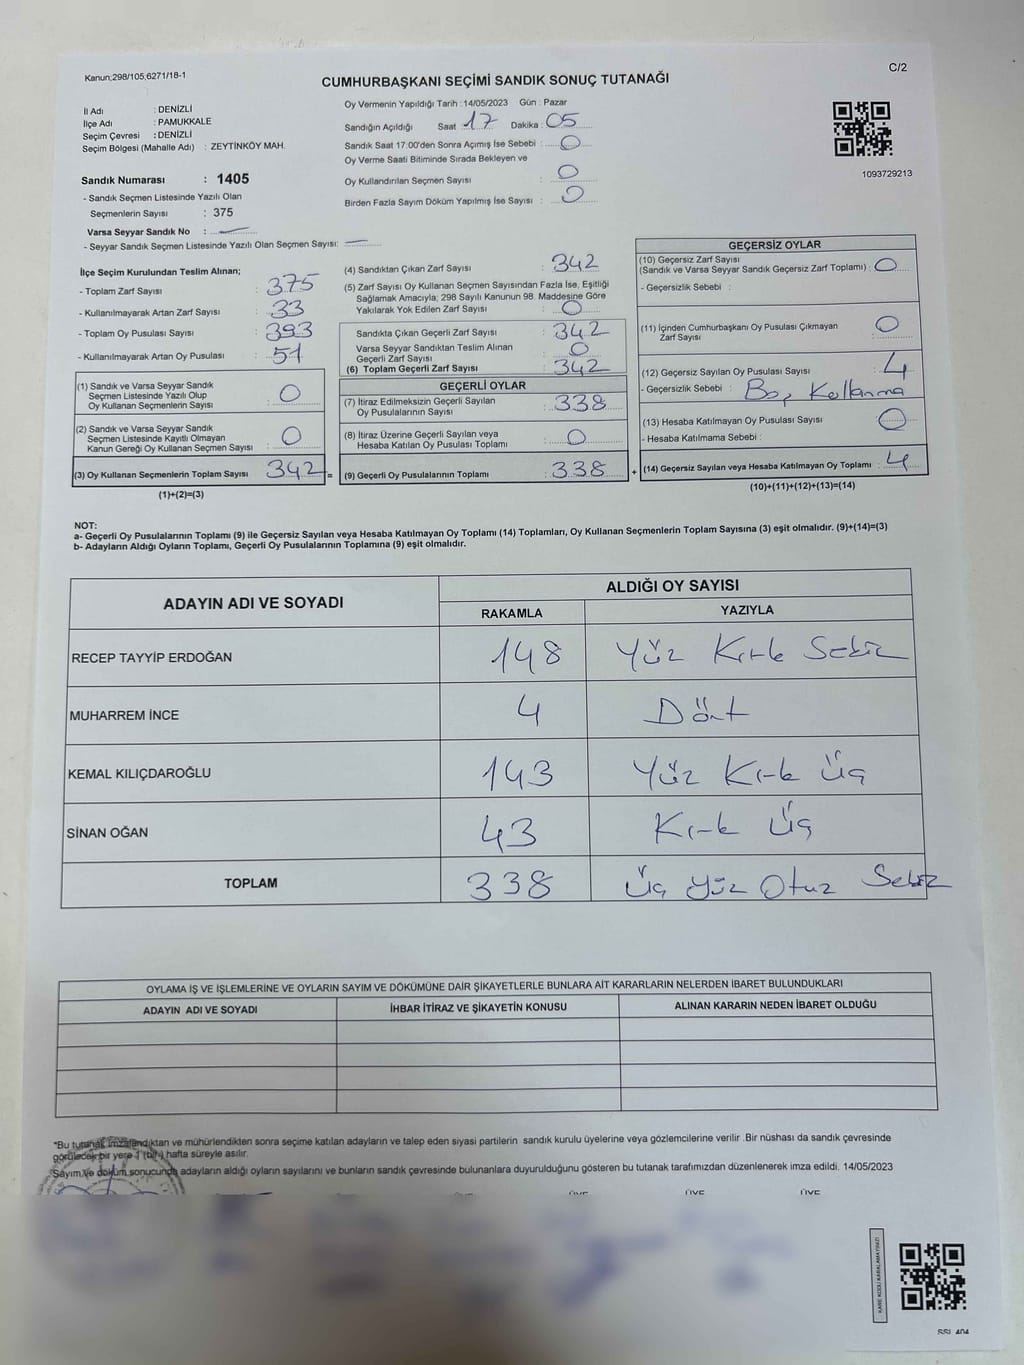 Kanun;298/105;6271/18-1
C/2
CUMHURBAŞKANI SEÇİMİ SANDIK SONUÇ TUTANAĞI
İl Adı : DENİZLİ
İlçe Adı : PAMUKKALE
Seçim Çevresi : DENİZLİ
Seçim Bölgesi (Mahalle Adı) : ZEYTİNKÖY MAH.
Sandık Numarası : 1405
- Sandık Seçmen Listesinde Yazılı Olan
Seçmenlerin Sayısı : 375
Varsa Seyyar Sandık No : —
- Seyyar Sandık Seçmen Listesinde Yazılı Olan Seçmen Sayısı: —
Oy Vermenin Yapıldığı Tarih : 14/05/2023 Gün : Pazar
Sandığın Açıldığı Saat : 17 Dakika : 05
Sandık Saat 17.00'den Sonra Açımış İse Sebebi : 0
Oy Verme Saati Bitiminde Sırada Bekleyen ve
Oy Kullandırılan Seçmen Sayısı : 0
Birden Fazla Sayım Döküm Yapılmış İse Sayısı : 0
1093729213
İlçe Seçim Kurulundan Teslim Alınan;
- Toplam Zarf Sayısı : 375
- Kullanılmayarak Artan Zarf Sayısı : 33
- Toplam Oy Pusulası Sayısı : 393
- Kullanılmayarak Artan Oy Pusulası : 51
(1) Sandık ve Varsa Seyyar Sandık
Seçmen Listesinde Yazılı Olup
Oy Kullanan Seçmenlerin Sayısı : 0
(2) Sandık ve Varsa Seyyar Sandık
Seçmen Listesinde Kayıtlı Olmayan
Kanun Gereği Oy Kullanan Seçmen Sayısı : 0
(3) Oy Kullanan Seçmenlerin Toplam Sayısı : 342 =
(1)+(2)=(3)
(4) Sandıktan Çıkan Zarf Sayısı : 342
(5) Zarf Sayısı Oy Kullanan Seçmen Sayısından Fazla İse, Eşitliği
Sağlamak Amacıyla; 298 Sayılı Kanunun 98. Maddesine Göre
Yakılarak Yok Edilen Zarf Sayısı : 0
Sandıkta Çıkan Geçerli Zarf Sayısı : 342
Varsa Seyyar Sandıktan Teslim Alınan
Geçerli Zarf Sayısı : 0
(6) Toplam Geçerli Zarf Sayısı : 342
GEÇERLİ OYLAR
(7) İtiraz Edilmeksizin Geçerli Sayılan
Oy Pusulalarının Sayısı : 338
(8) İtiraz Üzerine Geçerli Sayılan veya
Hesaba Katılan Oy Pusulası Toplamı : 0
(9) Geçerli Oy Pusulalarının Toplamı : 338 +
GEÇERSİZ OYLAR
(10) Geçersiz Zarf Sayısı
(Sandık ve Varsa Seyyar Sandık Geçersiz Zarf Toplamı) : 0
- Geçersizlik Sebebi :
(11) İçinden Cumhurbaşkanı Oy Pusulası Çıkmayan
Zarf Sayısı : 0
(12) Geçersiz Sayılan Oy Pusulası Sayısı : 4
- Geçersizlik Sebebi : Boş Kullanma
(13) Hesaba Katılmayan Oy Pusulası Sayısı : 0
- Hesaba Katılmama Sebebi :
(14) Geçersiz Sayılan veya Hesaba Katılmayan Oy Toplamı : 4
(10)+(11)+(12)+(13)=(14)
NOT:
a- Geçerli Oy Pusulalarının Toplamı (9) ile Geçersiz Sayılan veya Hesaba Katılmayan Oy Toplamı (14) Toplamları, Oy Kullanan Seçmenlerin Toplam Sayısına (3) eşit olmalıdır. (9)+(14)=(3)
b- Adayların Aldığı Oyların Toplamı, Geçerli Oy Pusulalarının Toplamına (9) eşit olmalıdır.
ADAYIN ADI VE SOYADI
ALDIĞI OY SAYISI
RAKAMLA YAZIYLA
RECEP TAYYİP ERDOĞAN 148 Yüz Kırk Sekiz
MUHARREM İNCE 4 Dört
KEMAL KILIÇDAROĞLU 143 Yüz Kırk Üç
SİNAN OĞAN 43 Kırk Üç
TOPLAM 338 Üç Yüz Otuz Sekiz
OYLAMA İŞ VE İŞLEMLERİNE VE OYLARIN SAYIM VE DÖKÜMÜNE DAİR ŞİKAYETLERLE BUNLARA AİT KARARLARIN NELERDEN İBARET BULUNDUKLARI
ADAYIN ADI VE SOYADI İHBAR İTİRAZ VE ŞİKAYETİN KONUSU ALINAN KARARIN NEDEN İBARET OLDUĞU
*Bu tutanak imzalandıktan ve mühürlendikten sonra seçime katılan adayların ve talep eden siyasi partilerin sandık kurulu üyelerine veya gözlemcilerine verilir .Bir nüshası da sandık çevresinde
görülecek bir yere 1 (bir) hafta süreyle asılır.
Sayım ve döküm sonucunda adayların aldığı oyların sayılarını ve bunların sandık çevresinde bulunanlara duyurulduğunu gösteren bu tutanak tarafımızdan düzenlenerek imza edildi. 14/05/2023
ÜYE ÜYE ÜYE
KARE KODU KARALAMAYINIZ!
SSL 404